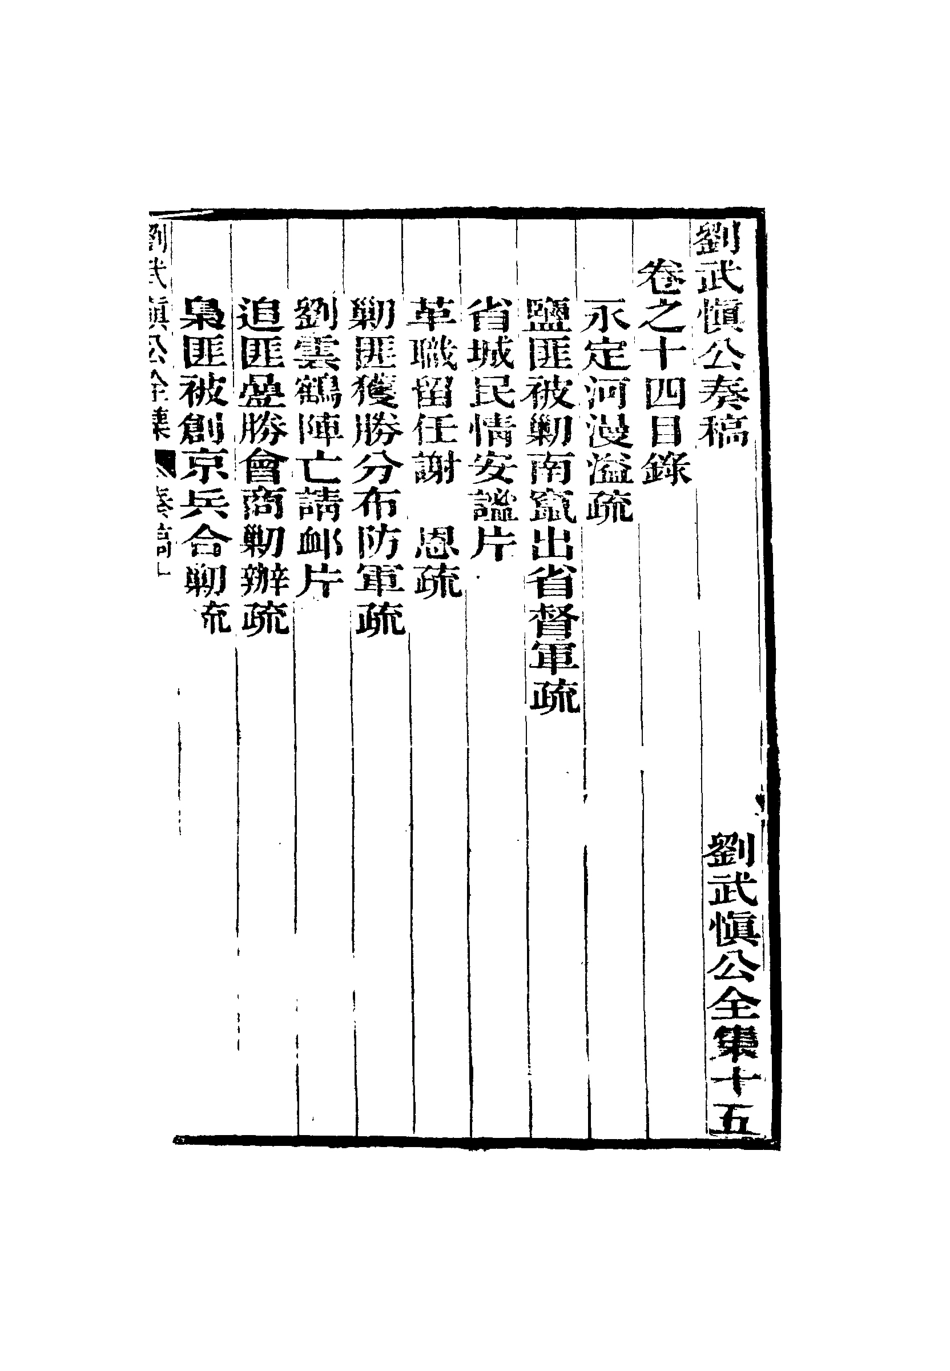 劉武愼公奏稿
劉武愼公全集十五
卷之十四目錄
永定河漫溢疏
鹽匪被勦南竄出省督軍疏
省城民情安謐片
革職留任謝　恩疏
勦匪獲勝分布防軍疏
劉雲鶴陣亡請卹片
追匪疊勝會商勦辦疏
梟匪被創京兵合勦疏
劉武愼公全集　奏稿